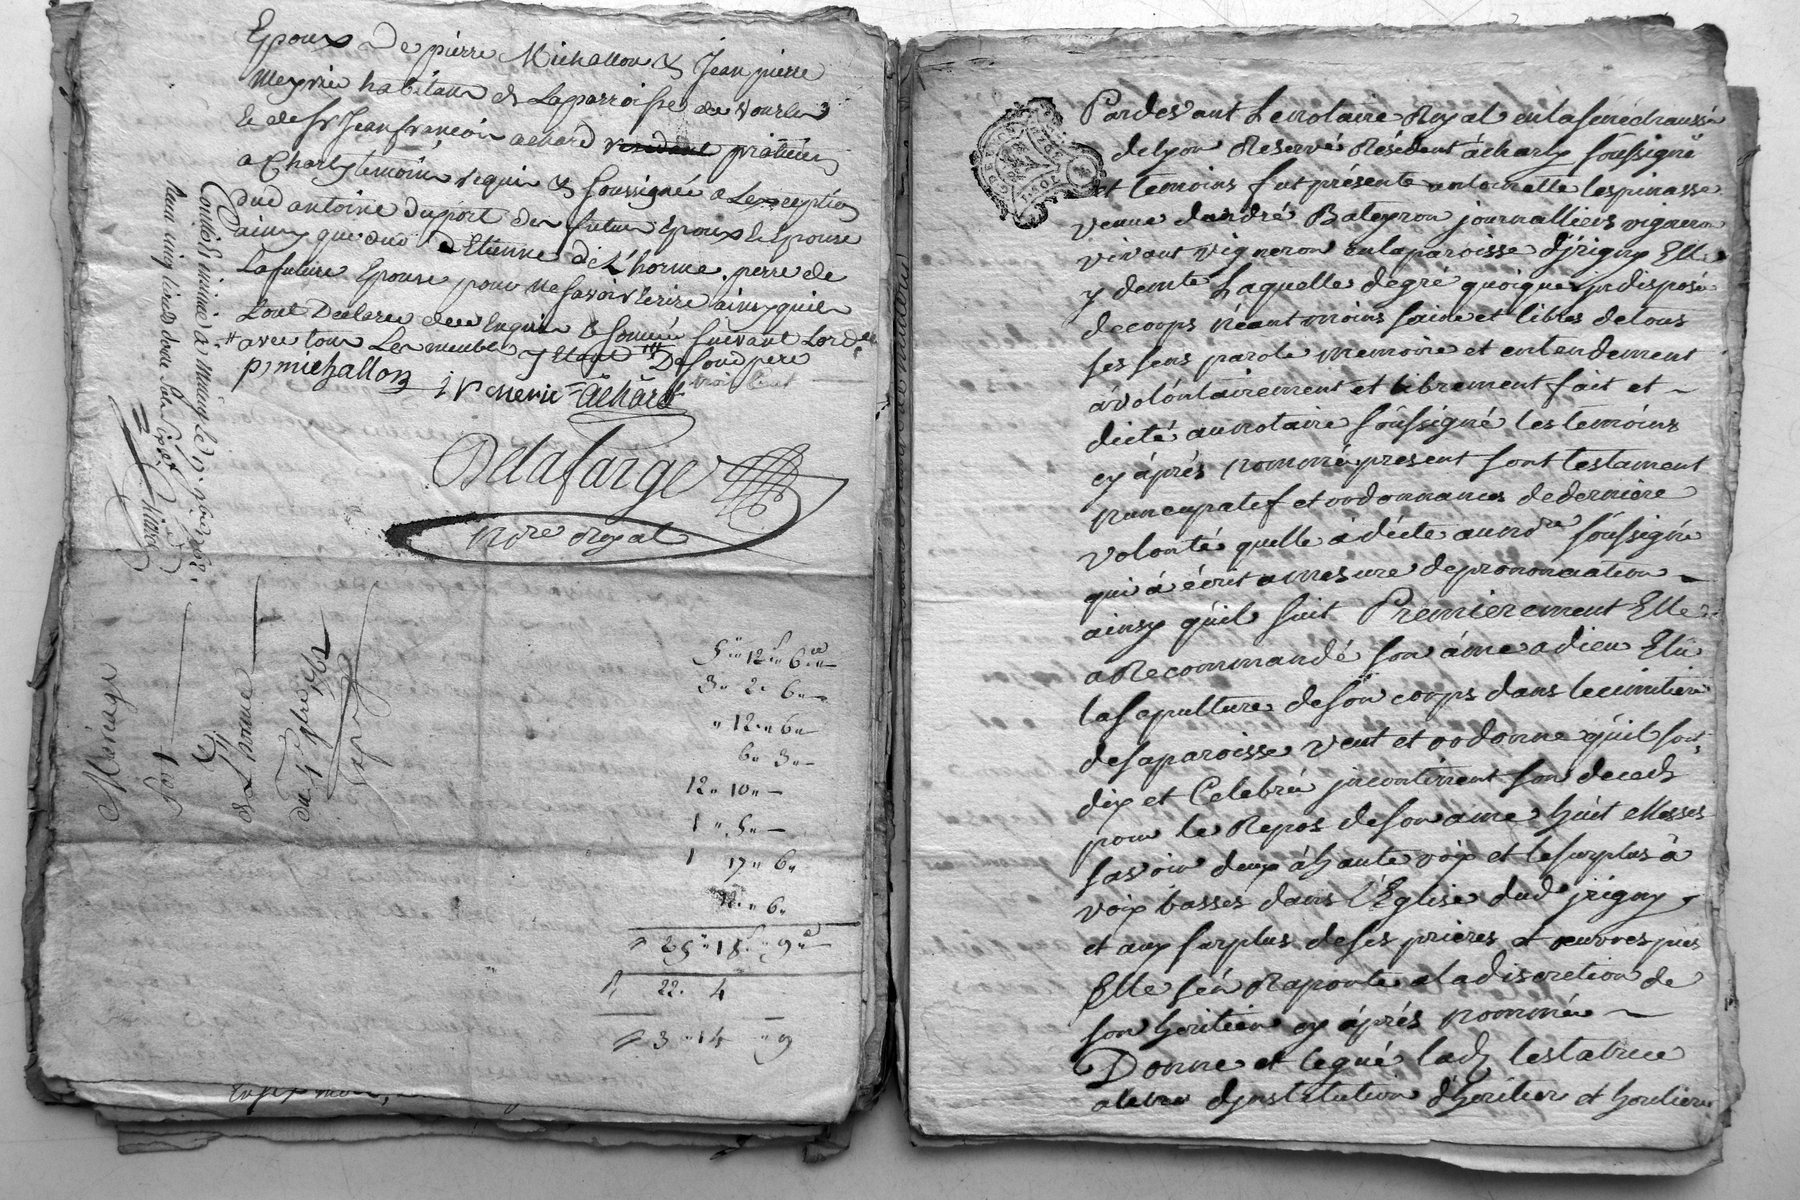 Epoux De pierre Michallon & Jean pierre
Meyrie habitans de La parroisse de vourles
& de Sr Jean françois achard praticien
a Charly temoins requis & soussignés a L'exception
dud antoine duport des futurs Epoux & Epouse
ainsy que dud Etienne de L'horme pere de
La future Epouse pour ne savoir Ecrire ainsy quils
Lont Declaré de ce Enquis & sommé suivant Lord
avec tous Les meubles y Etant De son d pere
p michallon J P Merie Achard
Delafarge
nore royal
Controllé
Mariage
De L'horme
du 1762
5" 12 6
3" 2" 6"
" 12" 6
6" 3"
12" 10"
1" 5"
1 17" 6"
12" 6"
25" 18" 9d
22" 4
3" 14 " 9
Pardevant Le notaire Royal en la sénéchaussé
de Lyon Reservé Résident à charly soussigné
et temoins fut présente antoinette lespinasse
veuve d'andré Bateyron journallier vigneron
vivant vigneron en la paroisse d'jrigny Elle
y demte Laquelle de gré quoique jndisposé
de coops néant moins saine et libre de tous
ses sens parole memoire et entendement
à volontairement et librement fait et
dicté au notaire soussigné les temoins
cy àprés nommé present son testament
nuncupatif et oodonnances de derniere
volonté quelle à dicté au nore soussigné
qui à écrit a mesure de prononciation
ainsy qu'il suit Premierement Elle
a Recommandé son âme a dieu Elû
la sepulture de son coops dans le cimitiere
de sa paroisse veut et oodonne qu'il soit
dix et Celebré jncontinent son decedz
pour le Repos de son ame huit Messes
savoir deux à haute voix et le surplus à
voix basses dans l'Eglise dud jrigny
et aux surplus de ses prieres et œuvres pies
Elle s'en Raporte a la discretion de
son heritier cy àprés nommé
Donne et legué lad testatrice
a titre d'jnstitution d'heritier et heritiere